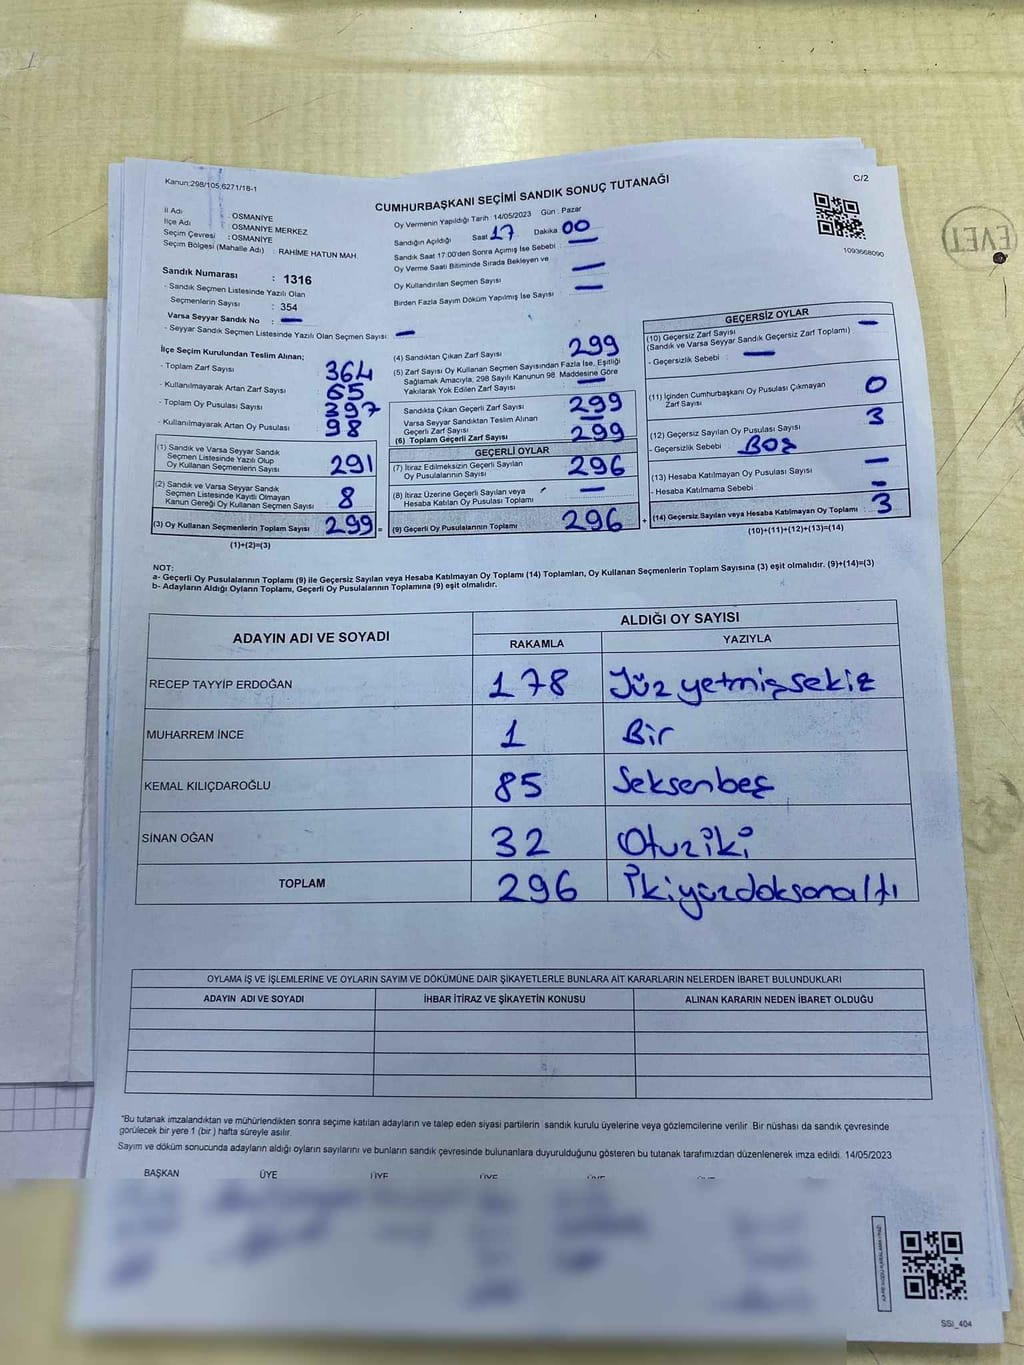 Kanun:298/105;6271/18-1
C/2
CUMHURBAŞKANI SEÇİMİ SANDIK SONUÇ TUTANAĞI
İl Adı : OSMANİYE
İlçe Adı : OSMANİYE MERKEZ
Seçim Çevresi : OSMANİYE
Seçim Bölgesi (Mahalle Adı) : RAHİME HATUN MAH.
Sandık Numarası : 1316
- Sandık Seçmen Listesinde Yazılı Olan
Seçmenlerin Sayısı : 354
Varsa Seyyar Sandık No : —
- Seyyar Sandık Seçmen Listesinde Yazılı Olan Seçmen Sayısı : —
Oy Vermenin Yapıldığı Tarih : 14/05/2023 Gün : Pazar
Sandığın Açıldığı Saat 17 Dakika 00
Sandık Saat 17:00'den Sonra Açımış İse Sebebi : —
Oy Verme Saati Bitiminde Sırada Bekleyen ve
Oy Kullandırılan Seçmen Sayısı : —
Birden Fazla Sayım Döküm Yapılmış İse Sayısı : —
1093668090
EVET
İlçe Seçim Kurulundan Teslim Alınan;
- Toplam Zarf Sayısı : 364
- Kullanılmayarak Artan Zarf Sayısı : 65
- Toplam Oy Pusulası Sayısı : 397
- Kullanılmayarak Artan Oy Pusulası : 98
(1) Sandık ve Varsa Seyyar Sandık
Seçmen Listesinde Yazılı Olup
Oy Kullanan Seçmenlerin Sayısı 291
(2) Sandık ve Varsa Seyyar Sandık
Seçmen Listesinde Kayıtlı Olmayan
Kanun Gereği Oy Kullanan Seçmen Sayısı 8
(3) Oy Kullanan Seçmenlerin Toplam Sayısı 299 =
(1)+(2)=(3)
(4) Sandıktan Çıkan Zarf Sayısı 299
(5) Zarf Sayısı Oy Kullanan Seçmen Sayısından Fazla İse, Eşitliği
Sağlamak Amacıyla, 298 Sayılı Kanunun 98. Maddesine Göre
Yakılarak Yok Edilen Zarf Sayısı : —
Sandıkta Çıkan Geçerli Zarf Sayısı 299
Varsa Seyyar Sandıktan Teslim Alınan
Geçerli Zarf Sayısı —
(6) Toplam Geçerli Zarf Sayısı 299
GEÇERLİ OYLAR
(7) İtiraz Edilmeksizin Geçerli Sayılan
Oy Pusulalarının Sayısı 296
(8) İtiraz Üzerine Geçerli Sayılan veya
Hesaba Katılan Oy Pusulası Toplamı —
(9) Geçerli Oy Pusulalarının Toplamı 296 +
GEÇERSİZ OYLAR
(10) Geçersiz Zarf Sayısı —
(Sandık ve Varsa Seyyar Sandık Geçersiz Zarf Toplamı)
- Geçersizlik Sebebi : —
(11) İçinden Cumhurbaşkanı Oy Pusulası Çıkmayan
Zarf Sayısı 0
(12) Geçersiz Sayılan Oy Pusulası Sayısı 3
- Geçersizlik Sebebi : BOŞ
(13) Hesaba Katılmayan Oy Pusulası Sayısı —
- Hesaba Katılmama Sebebi : —
(14) Geçersiz Sayılan veya Hesaba Katılmayan Oy Toplamı : 3
(10)+(11)+(12)+(13)=(14)
NOT:
a- Geçerli Oy Pusulalarının Toplamı (9) ile Geçersiz Sayılan veya Hesaba Katılmayan Oy Toplamı (14) Toplamları, Oy Kullanan Seçmenlerin Toplam Sayısına (3) eşit olmalıdır. (9)+(14)=(3)
b- Adayların Aldığı Oyların Toplamı, Geçerli Oy Pusulalarının Toplamına (9) eşit olmalıdır.
ADAYIN ADI VE SOYADI ALDIĞI OY SAYISI
RAKAMLA YAZIYLA
RECEP TAYYİP ERDOĞAN 178 Yüzyetmişsekiz
MUHARREM İNCE 1 Bir
KEMAL KILIÇDAROĞLU 85 Seksenbeş
SİNAN OĞAN 32 Otuziki
TOPLAM 296 İkiyüzdoksanaltı
OYLAMA İŞ VE İŞLEMLERİNE VE OYLARIN SAYIM VE DÖKÜMÜNE DAİR ŞİKAYETLERLE BUNLARA AİT KARARLARIN NELERDEN İBARET BULUNDUKLARI
ADAYIN ADI VE SOYADI İHBAR İTİRAZ VE ŞİKAYETİN KONUSU ALINAN KARARIN NEDEN İBARET OLDUĞU
"Bu tutanak imzalandıktan ve mühürlendikten sonra seçime katılan adayların ve talep eden siyasi partilerin sandık kurulu üyelerine veya gözlemcilerine verilir. Bir nüshası da sandık çevresinde
görülecek bir yere 1 (bir) hafta süreyle asılır.
Sayım ve döküm sonucunda adayların aldığı oyların sayılarını ve bunların sandık çevresinde bulunanlara duyurulduğunu gösteren bu tutanak tarafımızdan düzenlenerek imza edildi. 14/05/2023
BAŞKAN ÜYE ÜYE ÜYE ÜYE ÜYE
SSİ_404